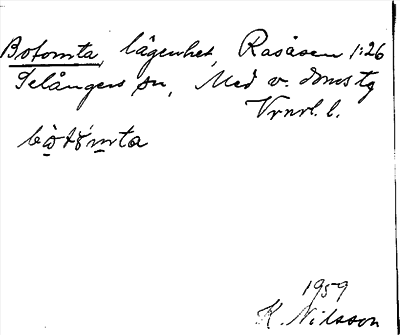 Botomta, lägenhet, Rasåsen 1:26
Selångers sn, Med v. doms tg
Vrnrl. l.
bòtòmta
1959
K. Nilsson